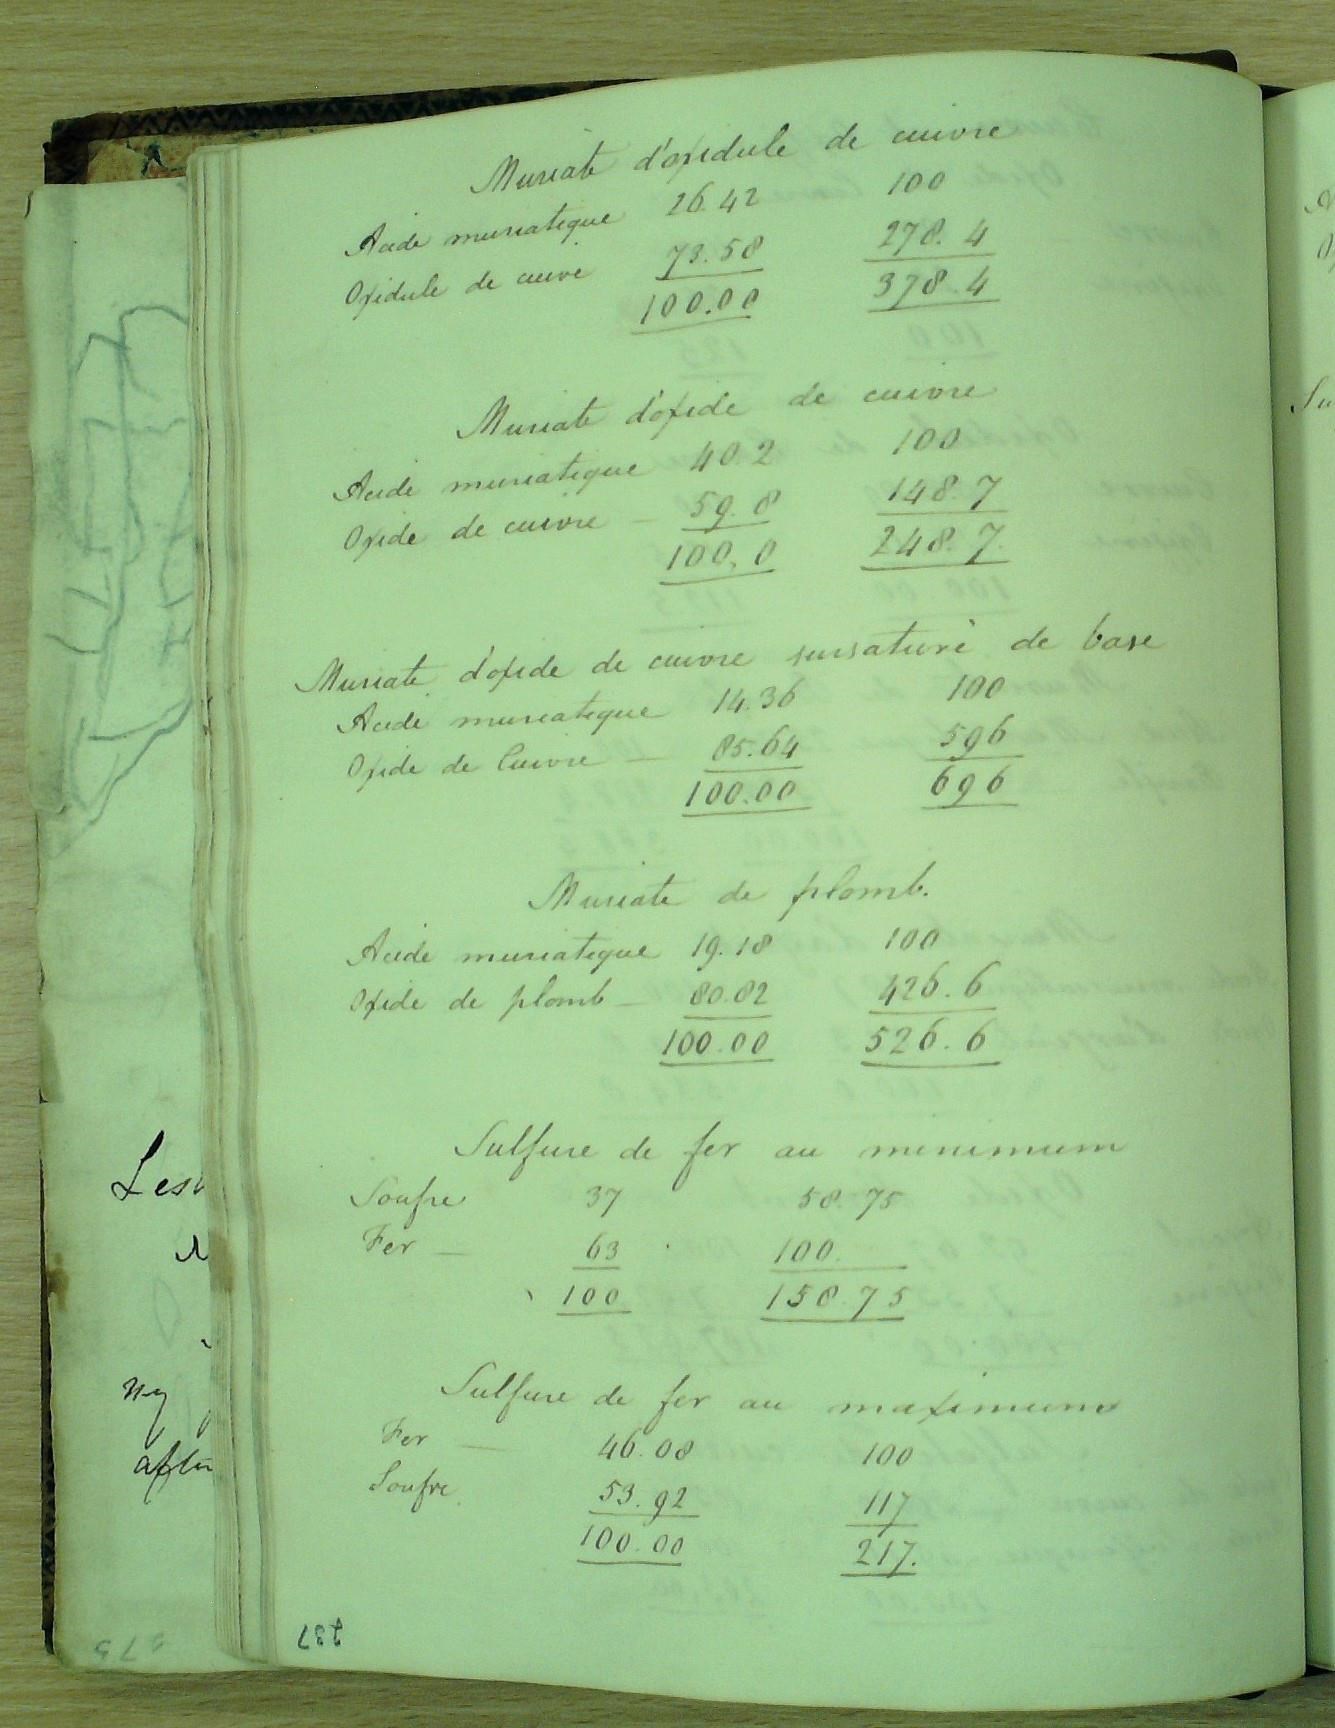 Muriate d'oxidule de cuivre
Acide muriatique 26.42 100
Oxidule de cuivre 73.58 278.4
100.00 378.4
Muriate d'oxide de cuivre
Acide muriatique 40.2 100
Oxide de cuivre — 59.8 148.7
100.0 248.7.
Muriate d'oxide de cuivre sursaturé de base
Acide muriatique 14.36 100
Oxide de Cuivre — 85.64 596
100.00 696
Muriate de plomb.
Acide muriatique 19.18 100
Oxide de plomb — 80.82 426.6
100.00 526.6
Sulfure de fer au minimum
Soufre 37 58.75
Fer — 63 100.
100 158.75
Sulfure de fer au maximum
Fer — 46.08 100
Soufre 53.92 117
100.00 217.
237
my